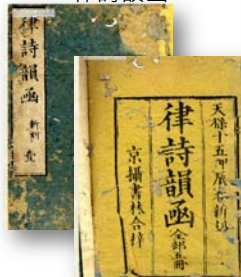 律詩韻函
律詩韻函
新刻
壹
天保十五甲辰春新刻
律詩韻函
全部五冊
京攝書林合梓